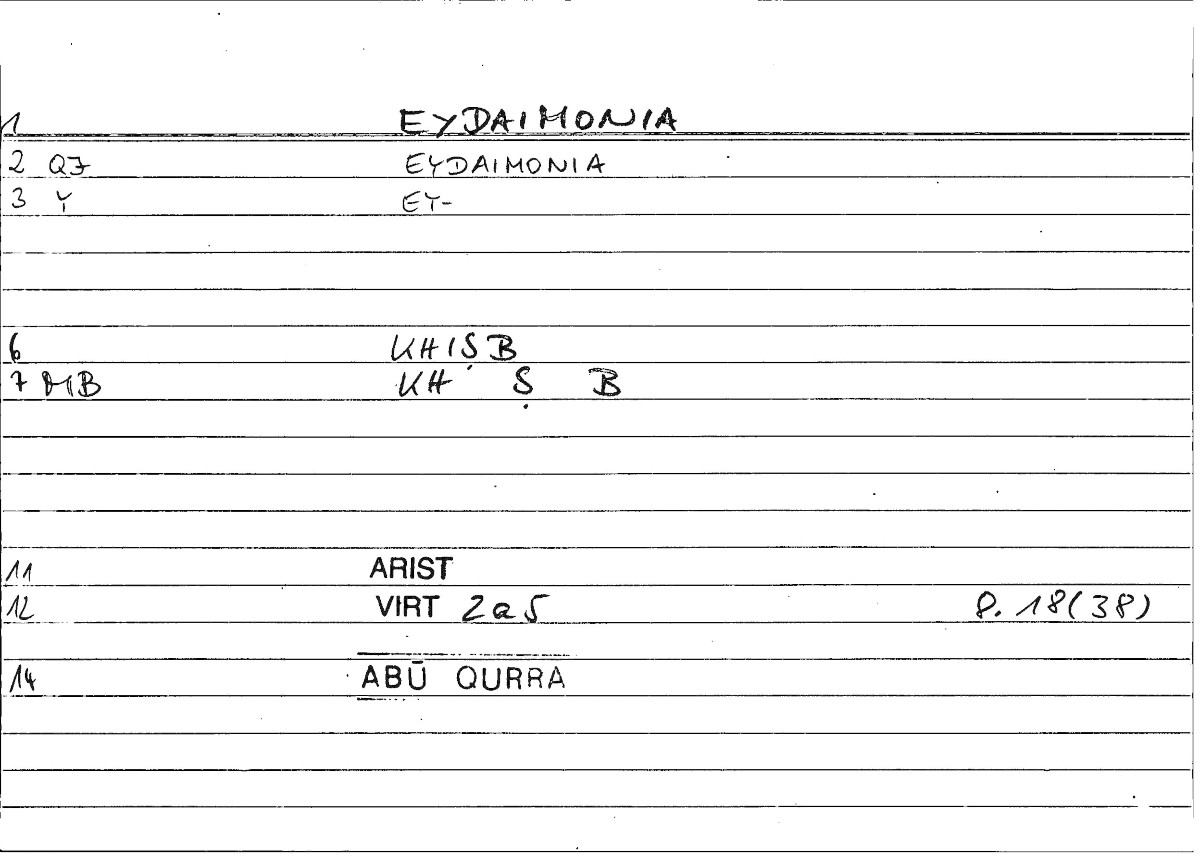 1 EYDAIMONIA
2 QJ EYDAIMONIA
3 Y EY-
6 KHIṢB
7 MB KH Ṣ B
11 ARIST
12 VIRT 2a5 P. 18(38)
14 ABŪ QURRA